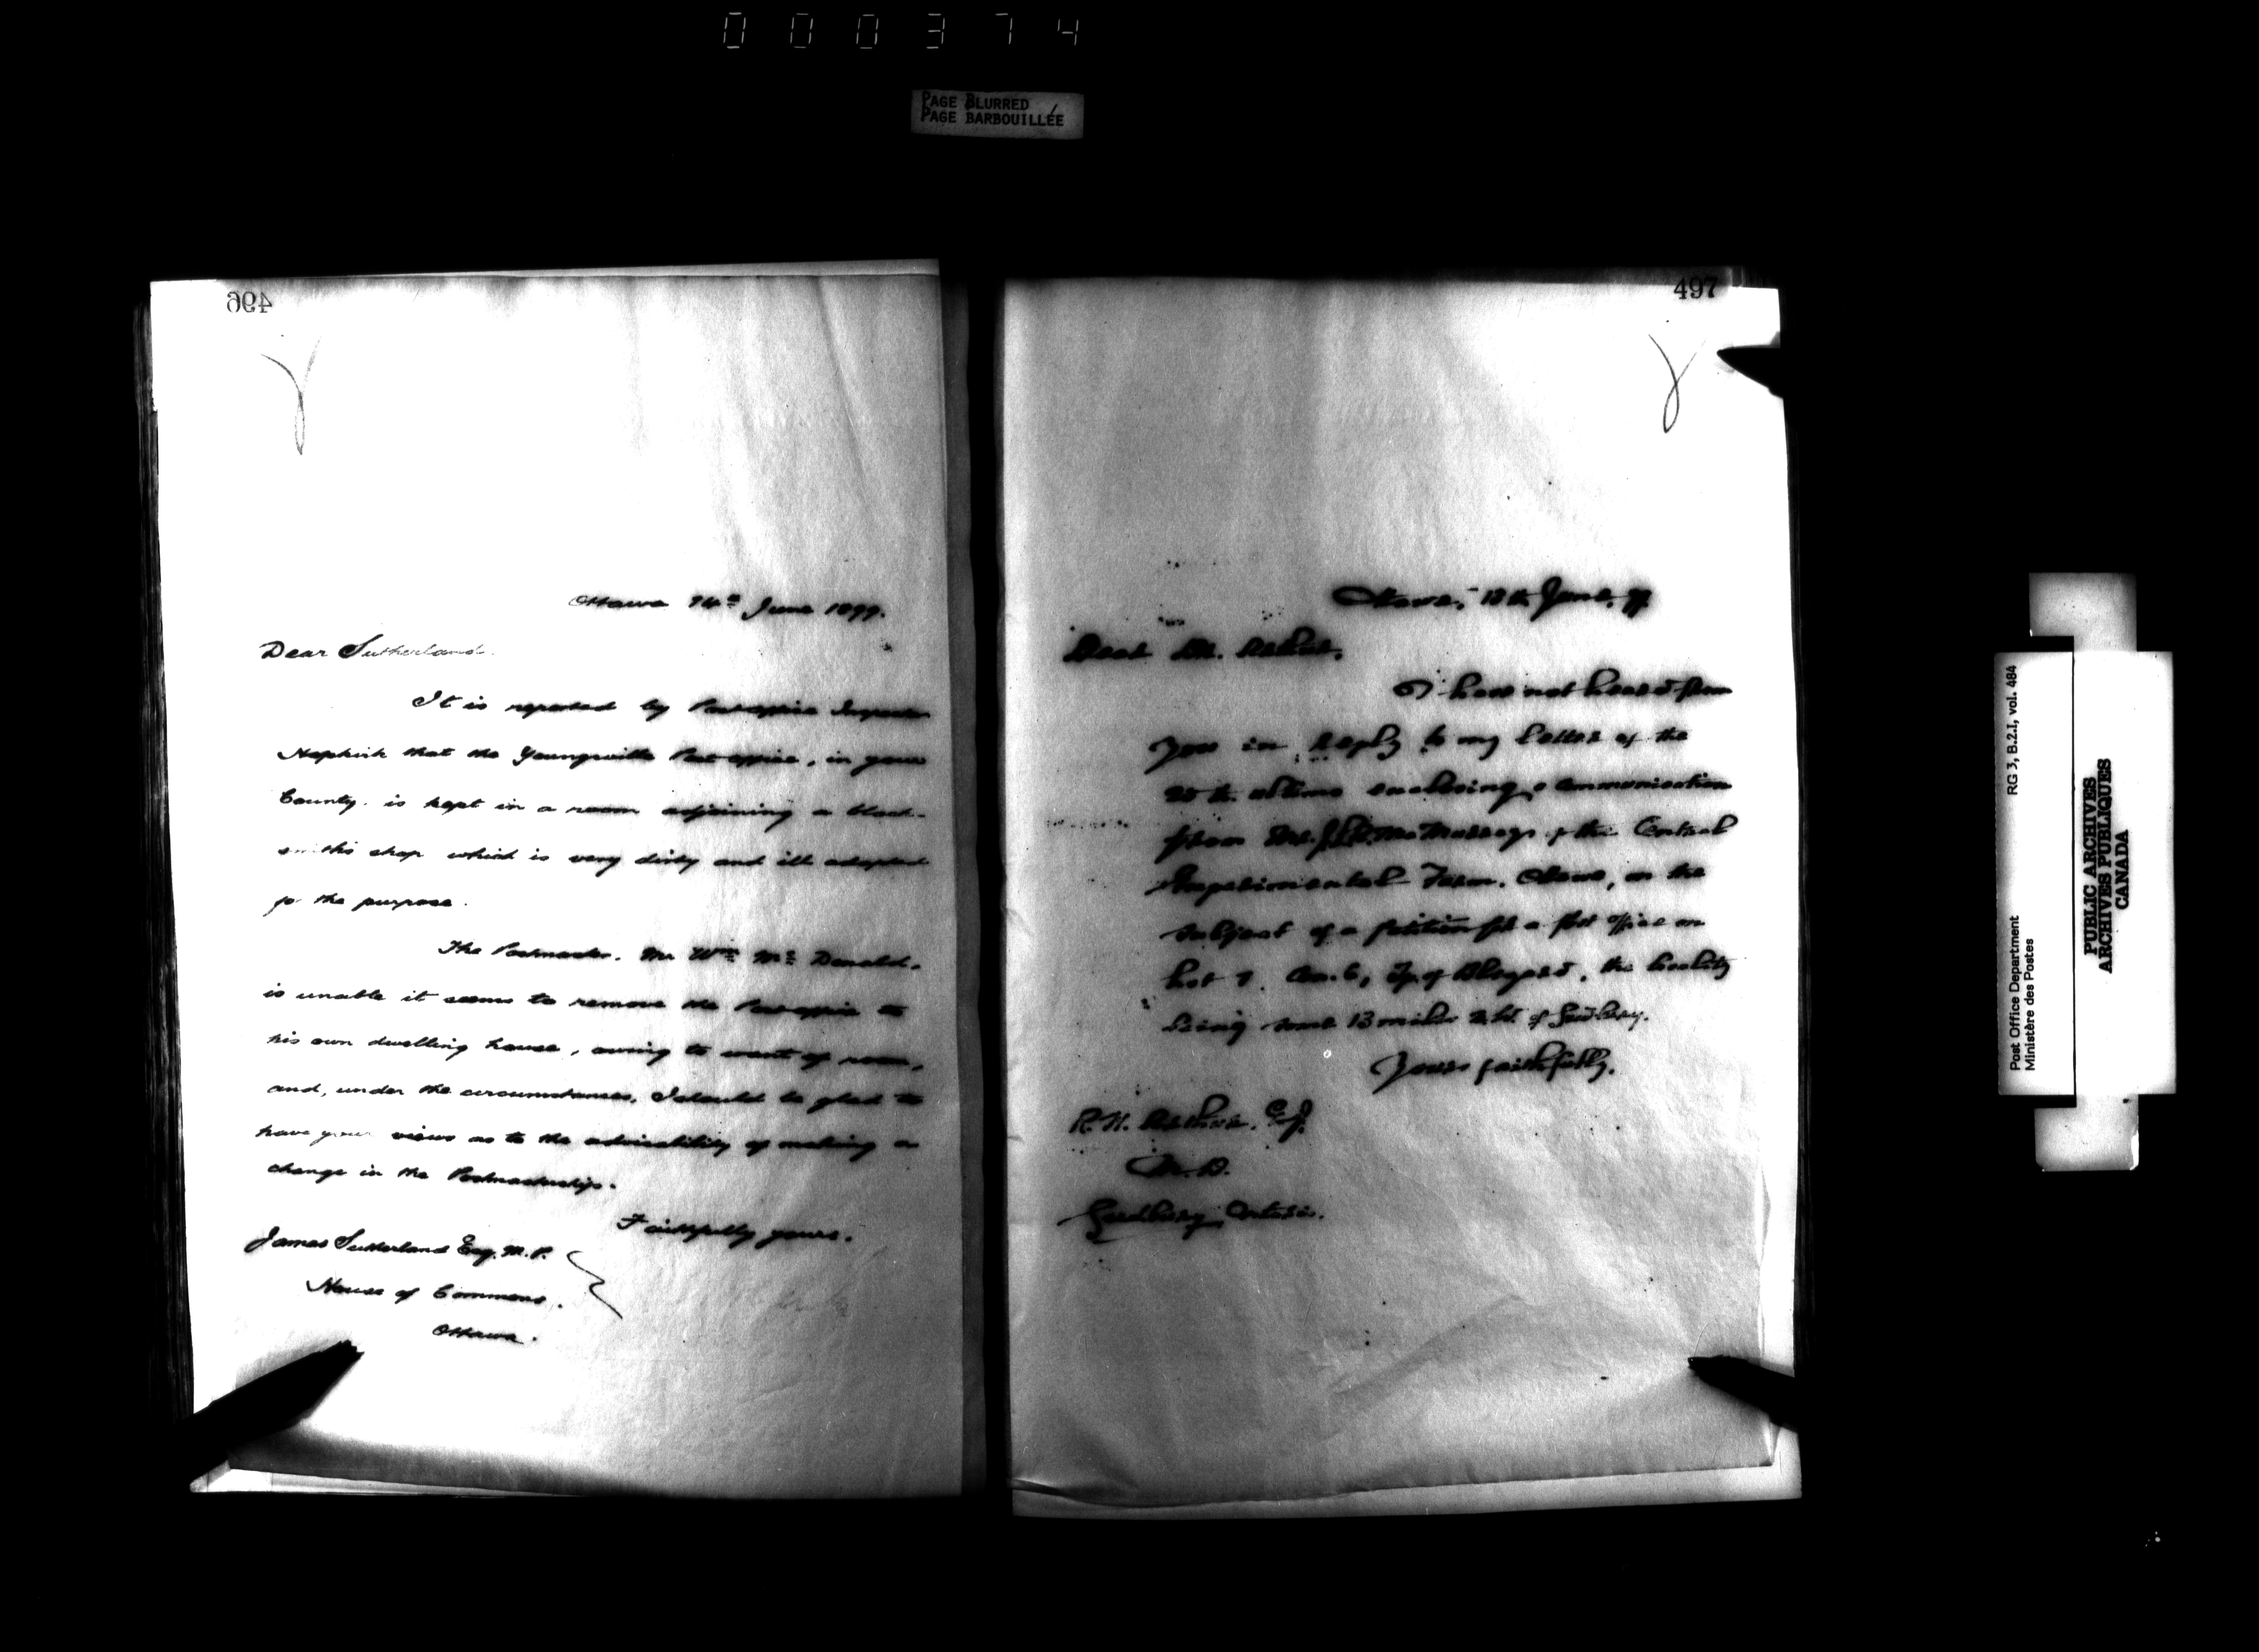 000374
PAGE BLURRED
PAGE BARBOUILLÉE
496
Ottawa 14th June 1899.
Dear Sutherland.
It is reported by Post office Inspector
Hopkirk that the Youngsville Post office, in your
County. is kept in a room adjoining a black-
smith's shop which is very dirty and ill adapted
for the purpose.
The Postmaster. Mr Wm Mc Donald.
is unable it seems to remove the Post office to
his own dwelling house, owing to want of room,
and, under the circumstances, I should be glad to
have your views as to the advisability of making a
change in the Postmastership.
Faithfully yours.
James Sutherland Esq. M.P.
House of Commons.
Ottawa.
497
Ottawa, 13th June, 99
Dear Mr. Arthur,
I have not heard from
you in reply to my letter of the
25th ultimo enclosing a communication
from Mr. McMurray of the Central
Experimental Farm. Ottawa, on the
subject of a petition for a post office on
Lot 7. Con. 6, Tp. of Blezard, the locality
being some 13 miles of Sudbury.
Yours faithfully.
R. H. Arthur. Esq.
M.D.
Sudbury, Ontario.
RG 3, B.2.I, vol. 484
Post Office Department
Ministère des Postes
PUBLIC ARCHIVES
ARCHIVES PUBLIQUES
CANADA